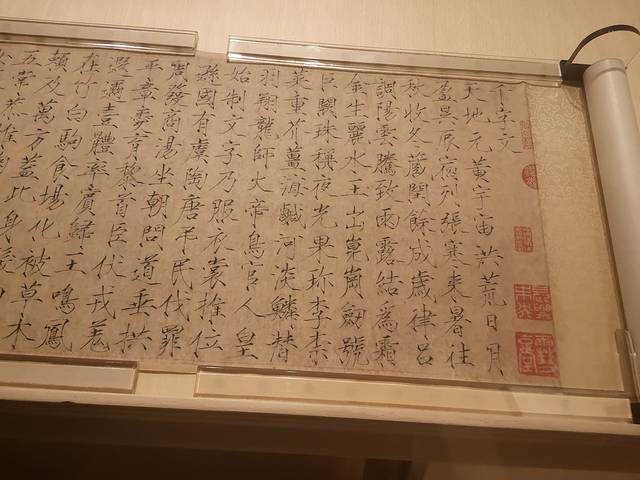 千字文
天地元黃宇宙洪荒日月
盈昃辰宿列張寒來暑往
秋收冬藏閏餘成歲律呂
調陽雲騰致雨露結為霜
金生麗水玉出崑崗劍號
巨闕珠稱夜光果珍李柰
菜重芥薑海鹹河淡鱗潛
羽翔龍師火帝鳥官人皇
始制文字乃服衣裳推位
遜國有虞陶唐弔民伐罪
周發商湯坐朝問道垂拱
平章愛育黎首臣伏戎羌
遐邇壹體率賓歸王鳴鳳
在竹白駒食場化被草木
賴及萬方蓋此身髮四
五常恭惟